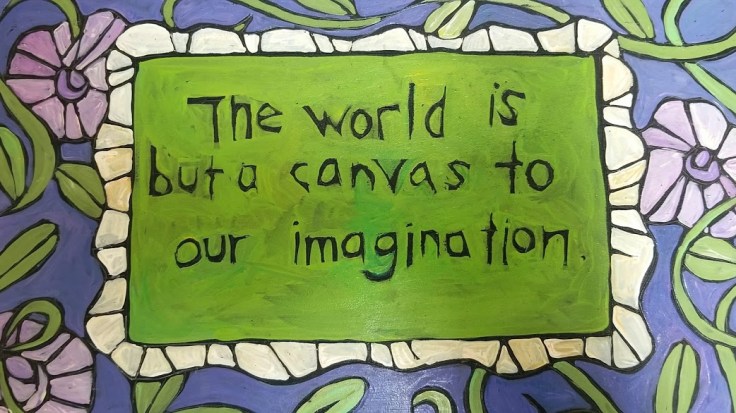 The world is
but a canvas to
our imagination.